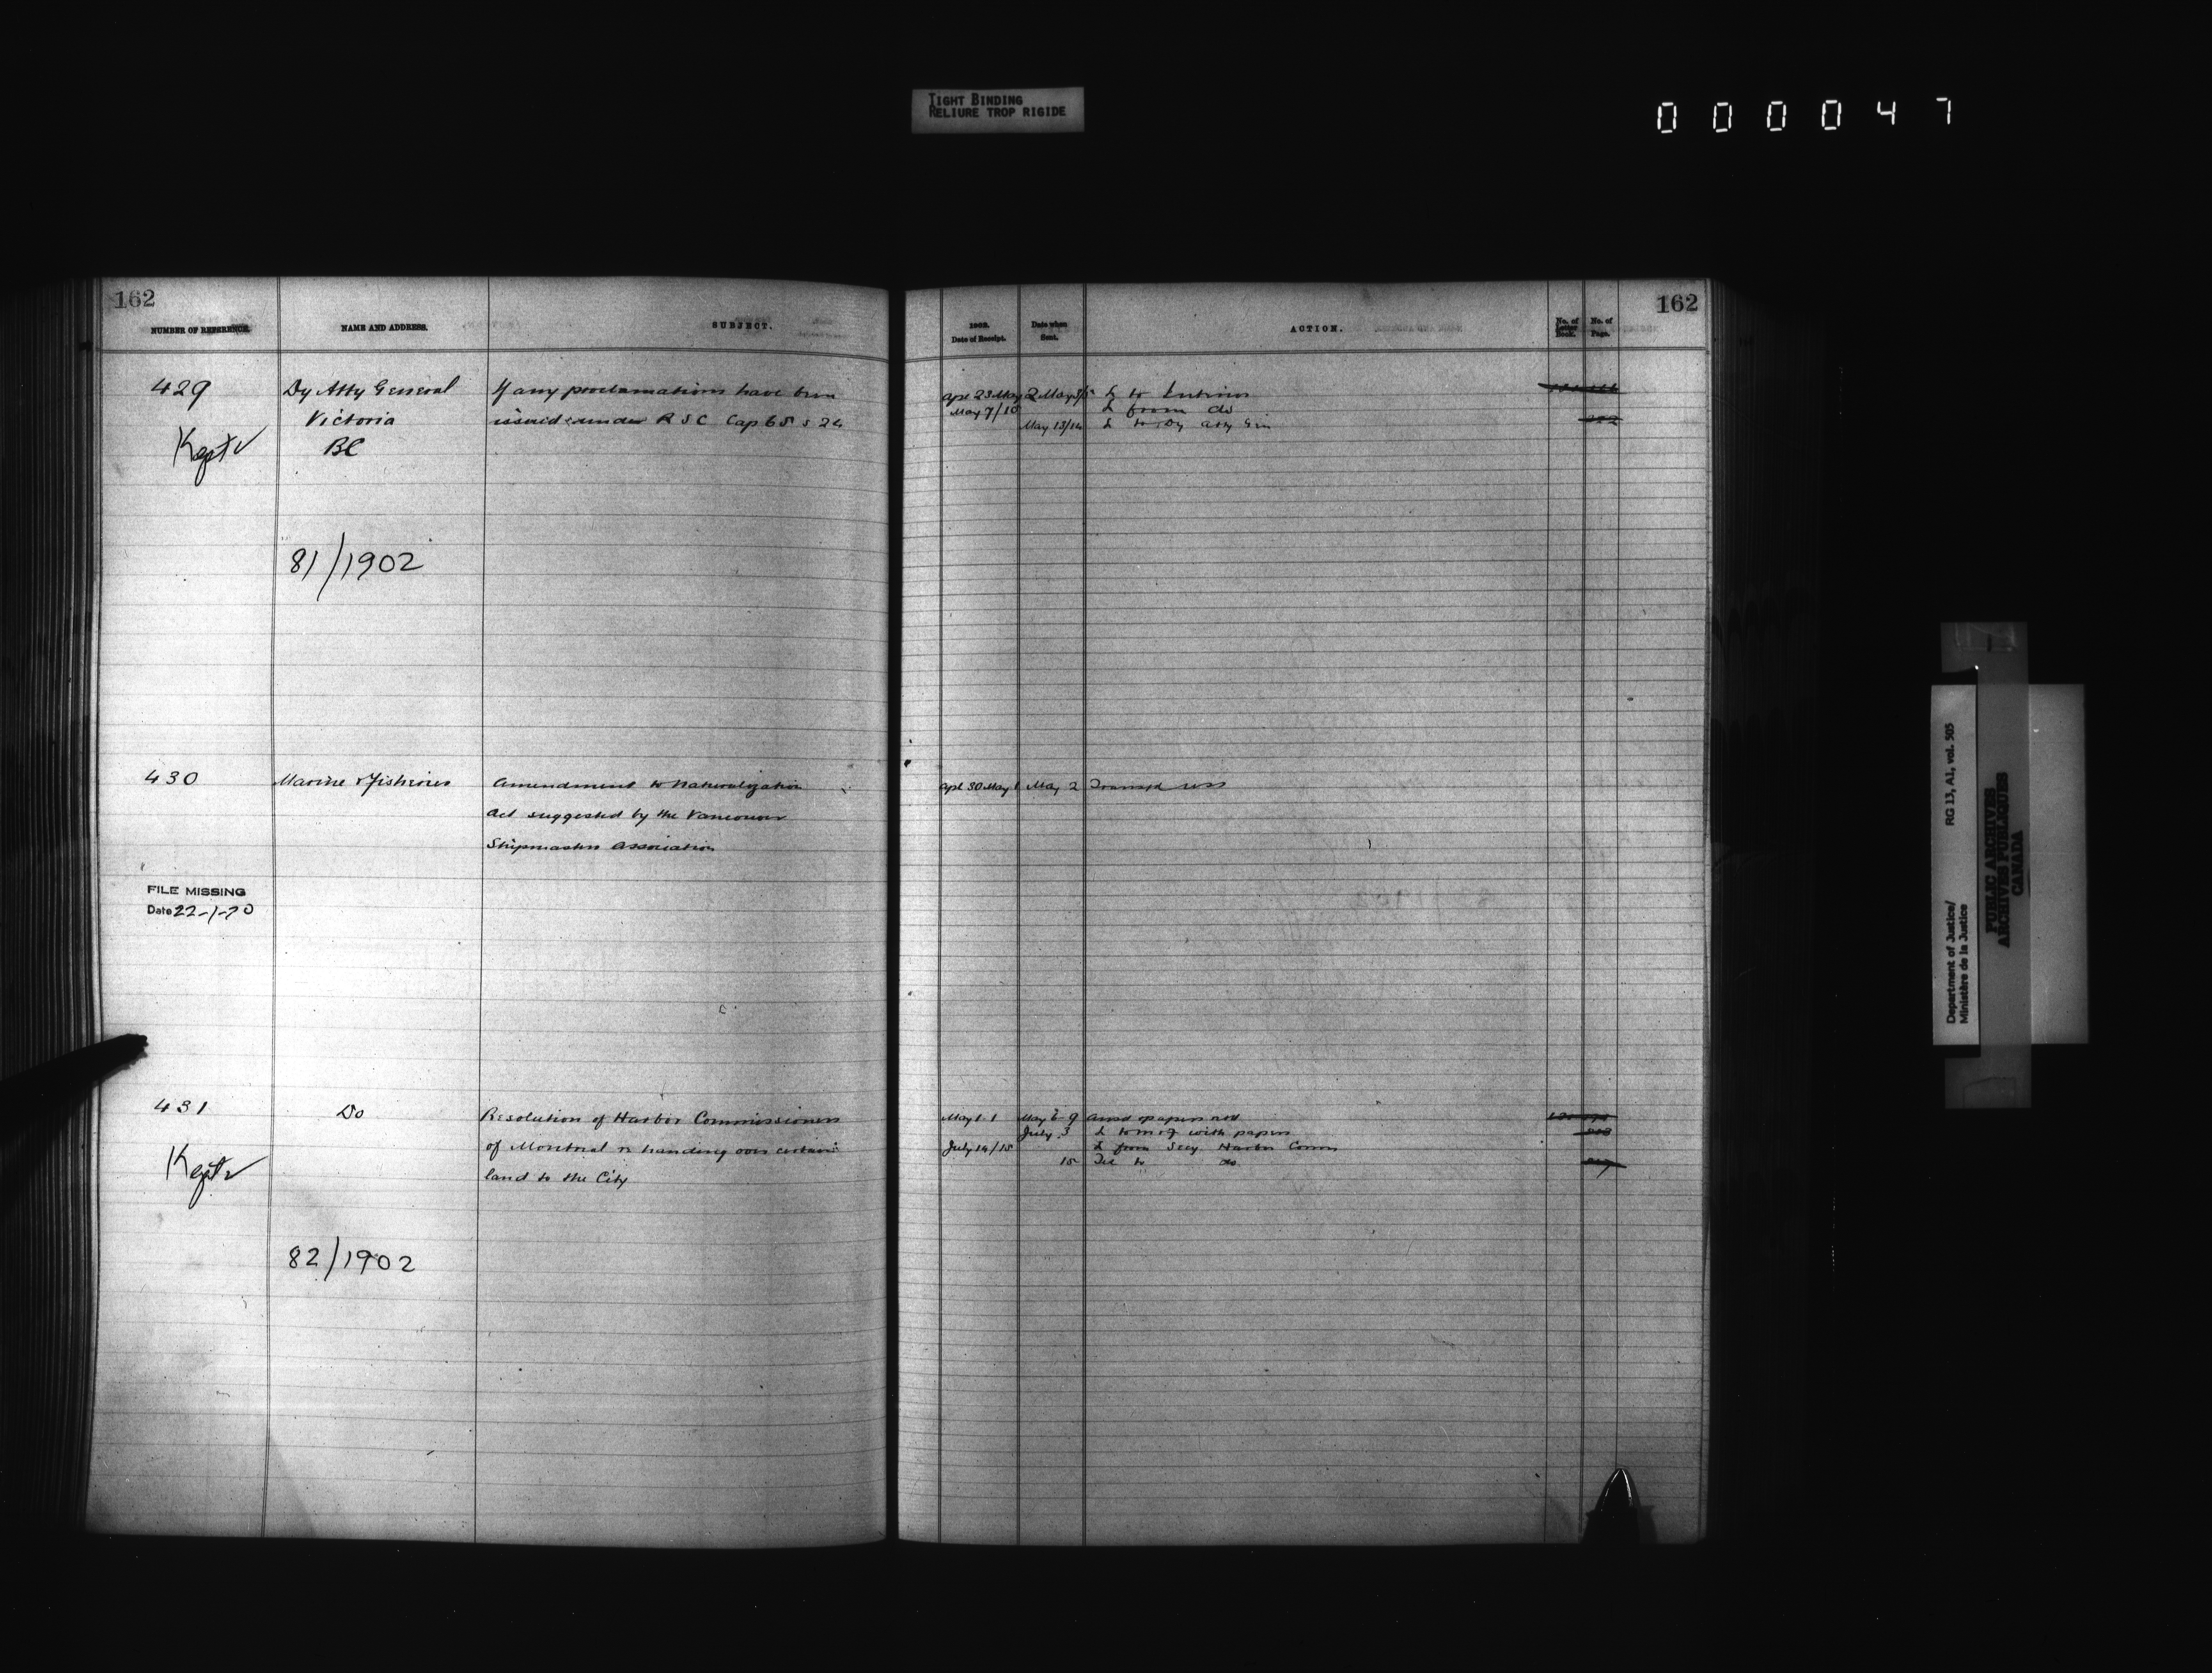 TIGHT BINDING
RELIURE TROP RIGIDE
000047
162
NUMBER OF REFERENCE.
NAME AND ADDRESS.
SUBJECT.
429
Dy Atty General
If any proclamations have been
Victoria
issued under R S C Cap 65 s 24
Kept
BC
81/1902
430
Marine & Fisheries
Amendment to Naturalization
Act suggested by the Vancouver
Shipmasters Association
FILE MISSING
Date 22-1-70
431
Do
Resolution of Harbor Commissioners
of Montreal re handing over certain
land to the City
Kept
82/1902
162
1902.
Date of Receipt.
Date when
Sent.
ACTION.
No. of
Letter
Book.
No. of
Page.
Apl 23 May 2 May 3/5 L to Interior
May 7/10 L from do
May 13/14 L to Dy Atty Gen
Apl 30 May 1 May 2
May 1 1 May 6 9 papers
July 3 L to M of with papers
July 14/15 L from Secy Harbor Comm
15 to do
RG 13, A1, vol. 505
Department of Justice/
Ministère de la Justice
PUBLIC ARCHIVES
ARCHIVES PUBLIQUES
CANADA